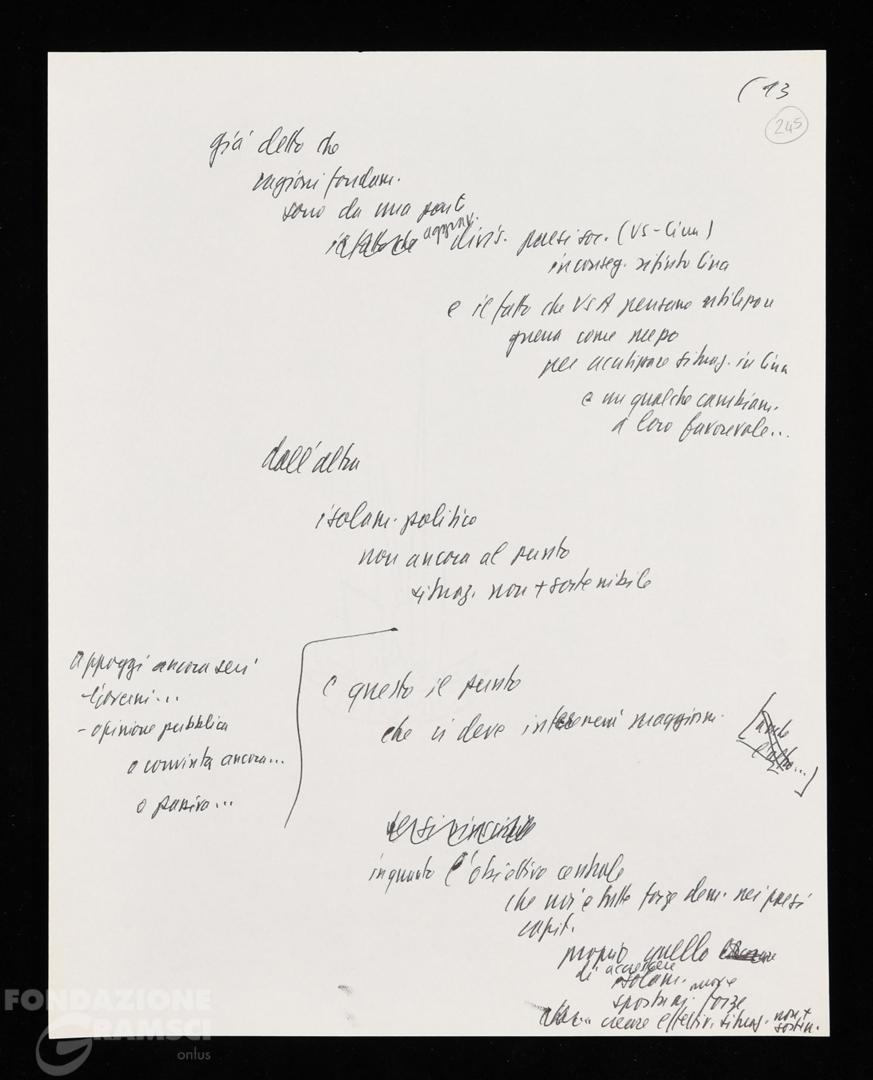 (13
245
già detto che
ragioni fondam.
sono da una parte
aggrav.
il fatto che divis. paesi soc. (US-Cina)
in conseg. rifiuto Cina
e il fatto che USA pensano utilizzare
guerra come mezzo
per acutizzare situaz. in Cina
e un qualche cambiam.
a loro favorevole...
dall'altra
isolam. politico
non ancora al punto
situaz. non + sostenibile
appoggi ancora seri
- Governi...
- opinione pubblica
o convinta ancora...
o passiva...
è questo il punto
che ci deve interessare maggiorm.
[anche
in quanto l'obiettivo centrale
che noi e tutte forze dem. nei paesi
capit.
proprio quello
di accrescere
isolam. nuove
spostam. forze
creare effettiv. situaz. non +
sosten.
FONDAZIONE
GRAMSCI
onlus